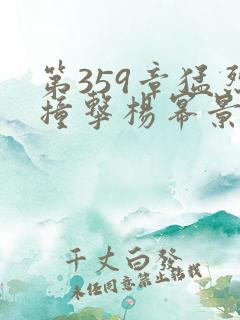 第359章猛烈
撞擊楊冪景
千丈白發
未经同意禁止转载